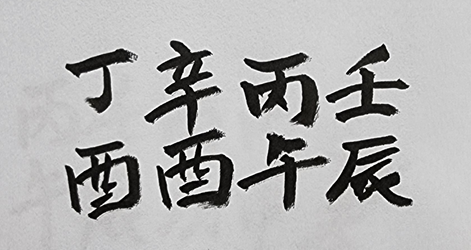 壬辰
丙午
辛酉
丁酉